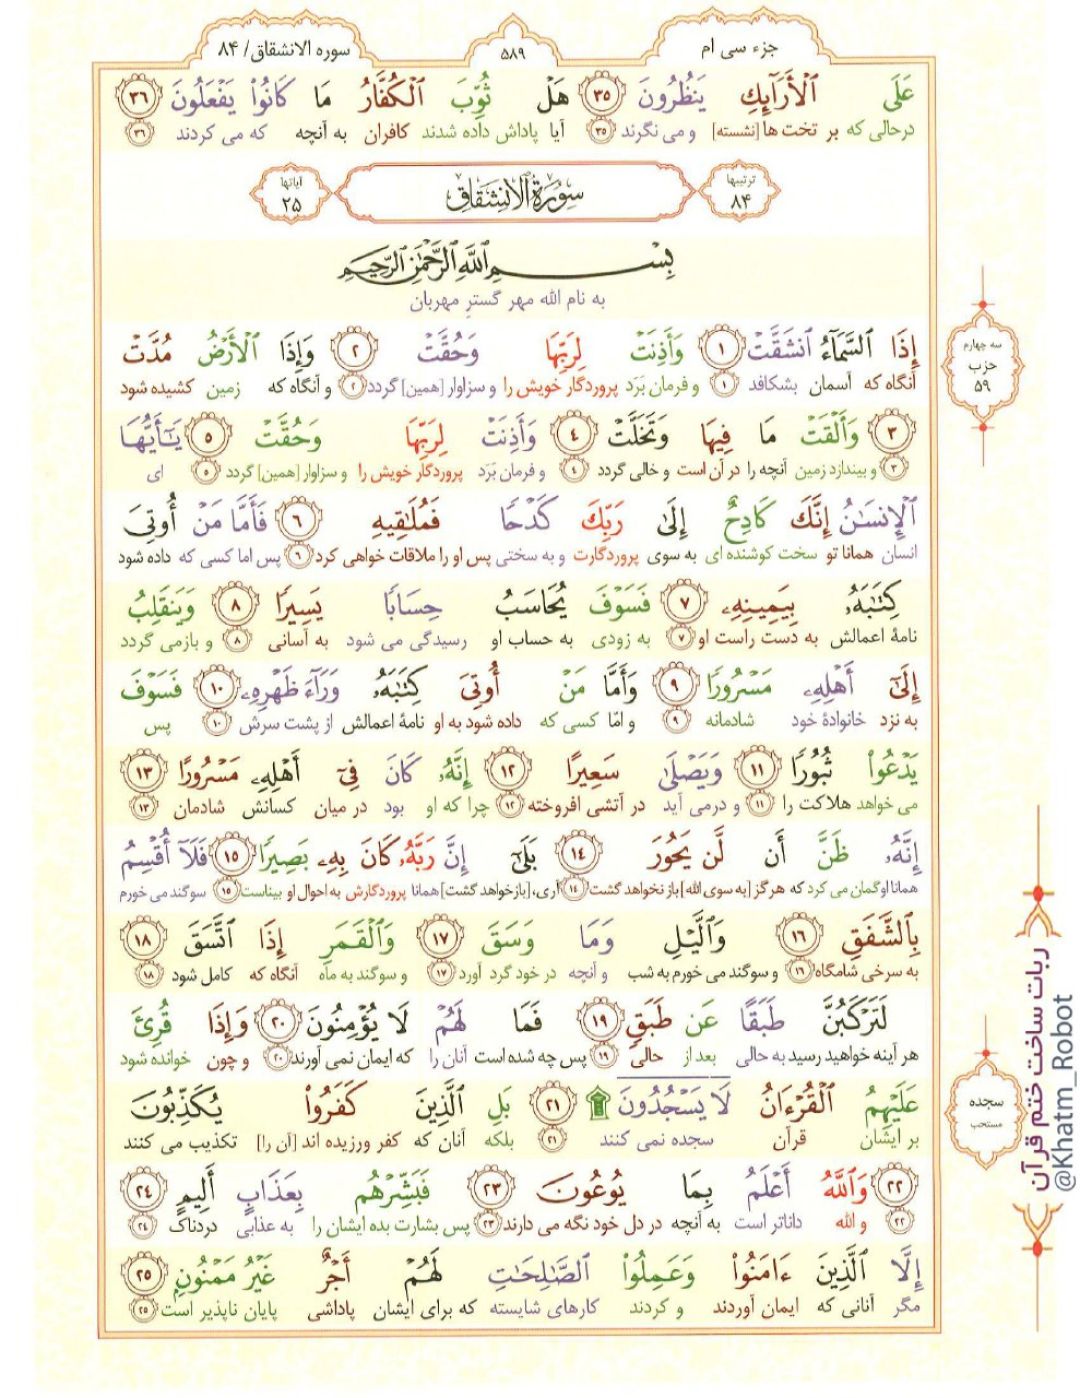 جزء سی ام
۵۸۹
سوره الانشقاق/ ۸۴
عَلَى ٱلۡأَرَآئِكِ يَنظُرُونَ ٣٥ هَلۡ ثُوِّبَ ٱلۡكُفَّارُ مَا كَانُواْ يَفۡعَلُونَ ٣٦
درحالی که بر تخت ها [نشسته] و می نگرند ۳۵ آیا پاداش داده شدند کافران به آنچه که می کردند ۳۶
ترتیبها ۸۴
سُورَةُ الانشِقَاقِ
آیاتها ۲۵
بِسۡمِ ٱللَّهِ ٱلرَّحۡمَٰنِ ٱلرَّحِيمِ
به نام الله مهر گستر مهربان
إِذَا ٱلسَّمَآءُ ٱنشَقَّتۡ ١ وَأَذِنَتۡ لِرَبِّهَا وَحُقَّتۡ ٢ وَإِذَا ٱلۡأَرۡضُ مُدَّتۡ
آنگاه که آسمان بشکافد ۱ و فرمان بَرَد پروردگار خویش را و سزاوار [همین] گردد ۲ و آنگاه که زمین کشیده شود
٣ وَأَلۡقَتۡ مَا فِيهَا وَتَخَلَّتۡ ٤ وَأَذِنَتۡ لِرَبِّهَا وَحُقَّتۡ ٥ يَٰٓأَيُّهَا
۳ و بیندازد زمین آنچه را در آن است و خالی گردد ۴ و فرمان بَرَد پروردگار خویش را و سزاوار [همین] گردد ۵ ای
ٱلۡإِنسَٰنُ إِنَّكَ كَادِحٌ إِلَىٰ رَبِّكَ كَدۡحٗا فَمُلَٰقِيهِ ٦ فَأَمَّا مَنۡ أُوتِيَ
انسان همانا تو سخت کوشنده ای به سوی پروردگارت و به سختی پس او را ملاقات خواهی کرد ۶ پس اما کسی که داده شود
كِتَٰبَهُۥ بِيَمِينِهِۦ ٧ فَسَوۡفَ يُحَاسَبُ حِسَابٗا يَسِيرٗا ٨ وَيَنقَلِبُ
نامهٔ اعمالش به دست راست او ۷ به زودی به حساب او رسیدگی می شود به آسانی ۸ و بازمی گردد
إِلَىٰٓ أَهۡلِهِۦ مَسۡرُورٗا ٩ وَأَمَّا مَنۡ أُوتِيَ كِتَٰبَهُۥ وَرَآءَ ظَهۡرِهِۦ ١٠ فَسَوۡفَ
به نزد خانوادهٔ خود شادمانه ۹ و امّا کسی که داده شود به او نامهٔ اعمالش از پشت سرش ۱۰ پس
يَدۡعُواْ ثُبُورٗا ١١ وَيَصۡلَىٰ سَعِيرًا ١٢ إِنَّهُۥ كَانَ فِيٓ أَهۡلِهِۦ مَسۡرُورًا ١٣
می خواهد هلاکت را ۱۱ و درمی آید در آتشی افروخته ۱۲ چرا که او بود در میان کسانش شادمان ۱۳
إِنَّهُۥ ظَنَّ أَن لَّن يَحُورَ ١٤ بَلَىٰٓ إِنَّ رَبَّهُۥ كَانَ بِهِۦ بَصِيرٗا ١٥ فَلَآ أُقۡسِمُ
همانا او گمان می کرد که هرگز [به سوی الله] باز نخواهد گشت ۱۴ آری، [بازخواهد گشت] همانا پروردگارش به احوال او بیناست ۱۵ سوگند می خورم
بِٱلشَّفَقِ ١٦ وَٱلَّيۡلِ وَمَا وَسَقَ ١٧ وَٱلۡقَمَرِ إِذَا ٱتَّسَقَ ١٨
به سرخی شامگاه ۱۶ و سوگند می خورم به شب و آنچه در خود گرد آورد ۱۷ و سوگند به ماه آنگاه که کامل شود ۱۸
لَتَرۡكَبُنَّ طَبَقًا عَن طَبَقٖ ١٩ فَمَا لَهُمۡ لَا يُؤۡمِنُونَ ٢٠ وَإِذَا قُرِئَ
هر آینه خواهید رسید به حالی بعد از حالی ۱۹ پس چه شده است آنان را که ایمان نمی آورند ۲۰ و چون خوانده شود
عَلَيۡهِمُ ٱلۡقُرۡءَانُ لَا يَسۡجُدُونَۤ ۩ ٢١ بَلِ ٱلَّذِينَ كَفَرُواْ يُكَذِّبُونَ
بر ایشان قرآن سجده نمی کنند ۲۱ بلکه آنان که کفر ورزیده اند [آن را] تکذیب می کنند
٢٢ وَٱللَّهُ أَعۡلَمُ بِمَا يُوعُونَ ٢٣ فَبَشِّرۡهُم بِعَذَابٍ أَلِيمٍ ٢٤
۲۲ و الله داناتر است به آنچه در دل خود نگه می دارند ۲۳ پس بشارت بده ایشان را به عذابی دردناک ۲۴
إِلَّا ٱلَّذِينَ ءَامَنُواْ وَعَمِلُواْ ٱلصَّٰلِحَٰتِ لَهُمۡ أَجۡرٌ غَيۡرُ مَمۡنُونِۭ ٢٥
مگر آنانی که ایمان آوردند و کردند کارهای شایسته که برای ایشان پاداشی پایان ناپذیر است ۲۵
سه چهارم
حزب
۵۹
سجده
مستحب
ربات ساخت ختم قرآن
@Khatm_Robot